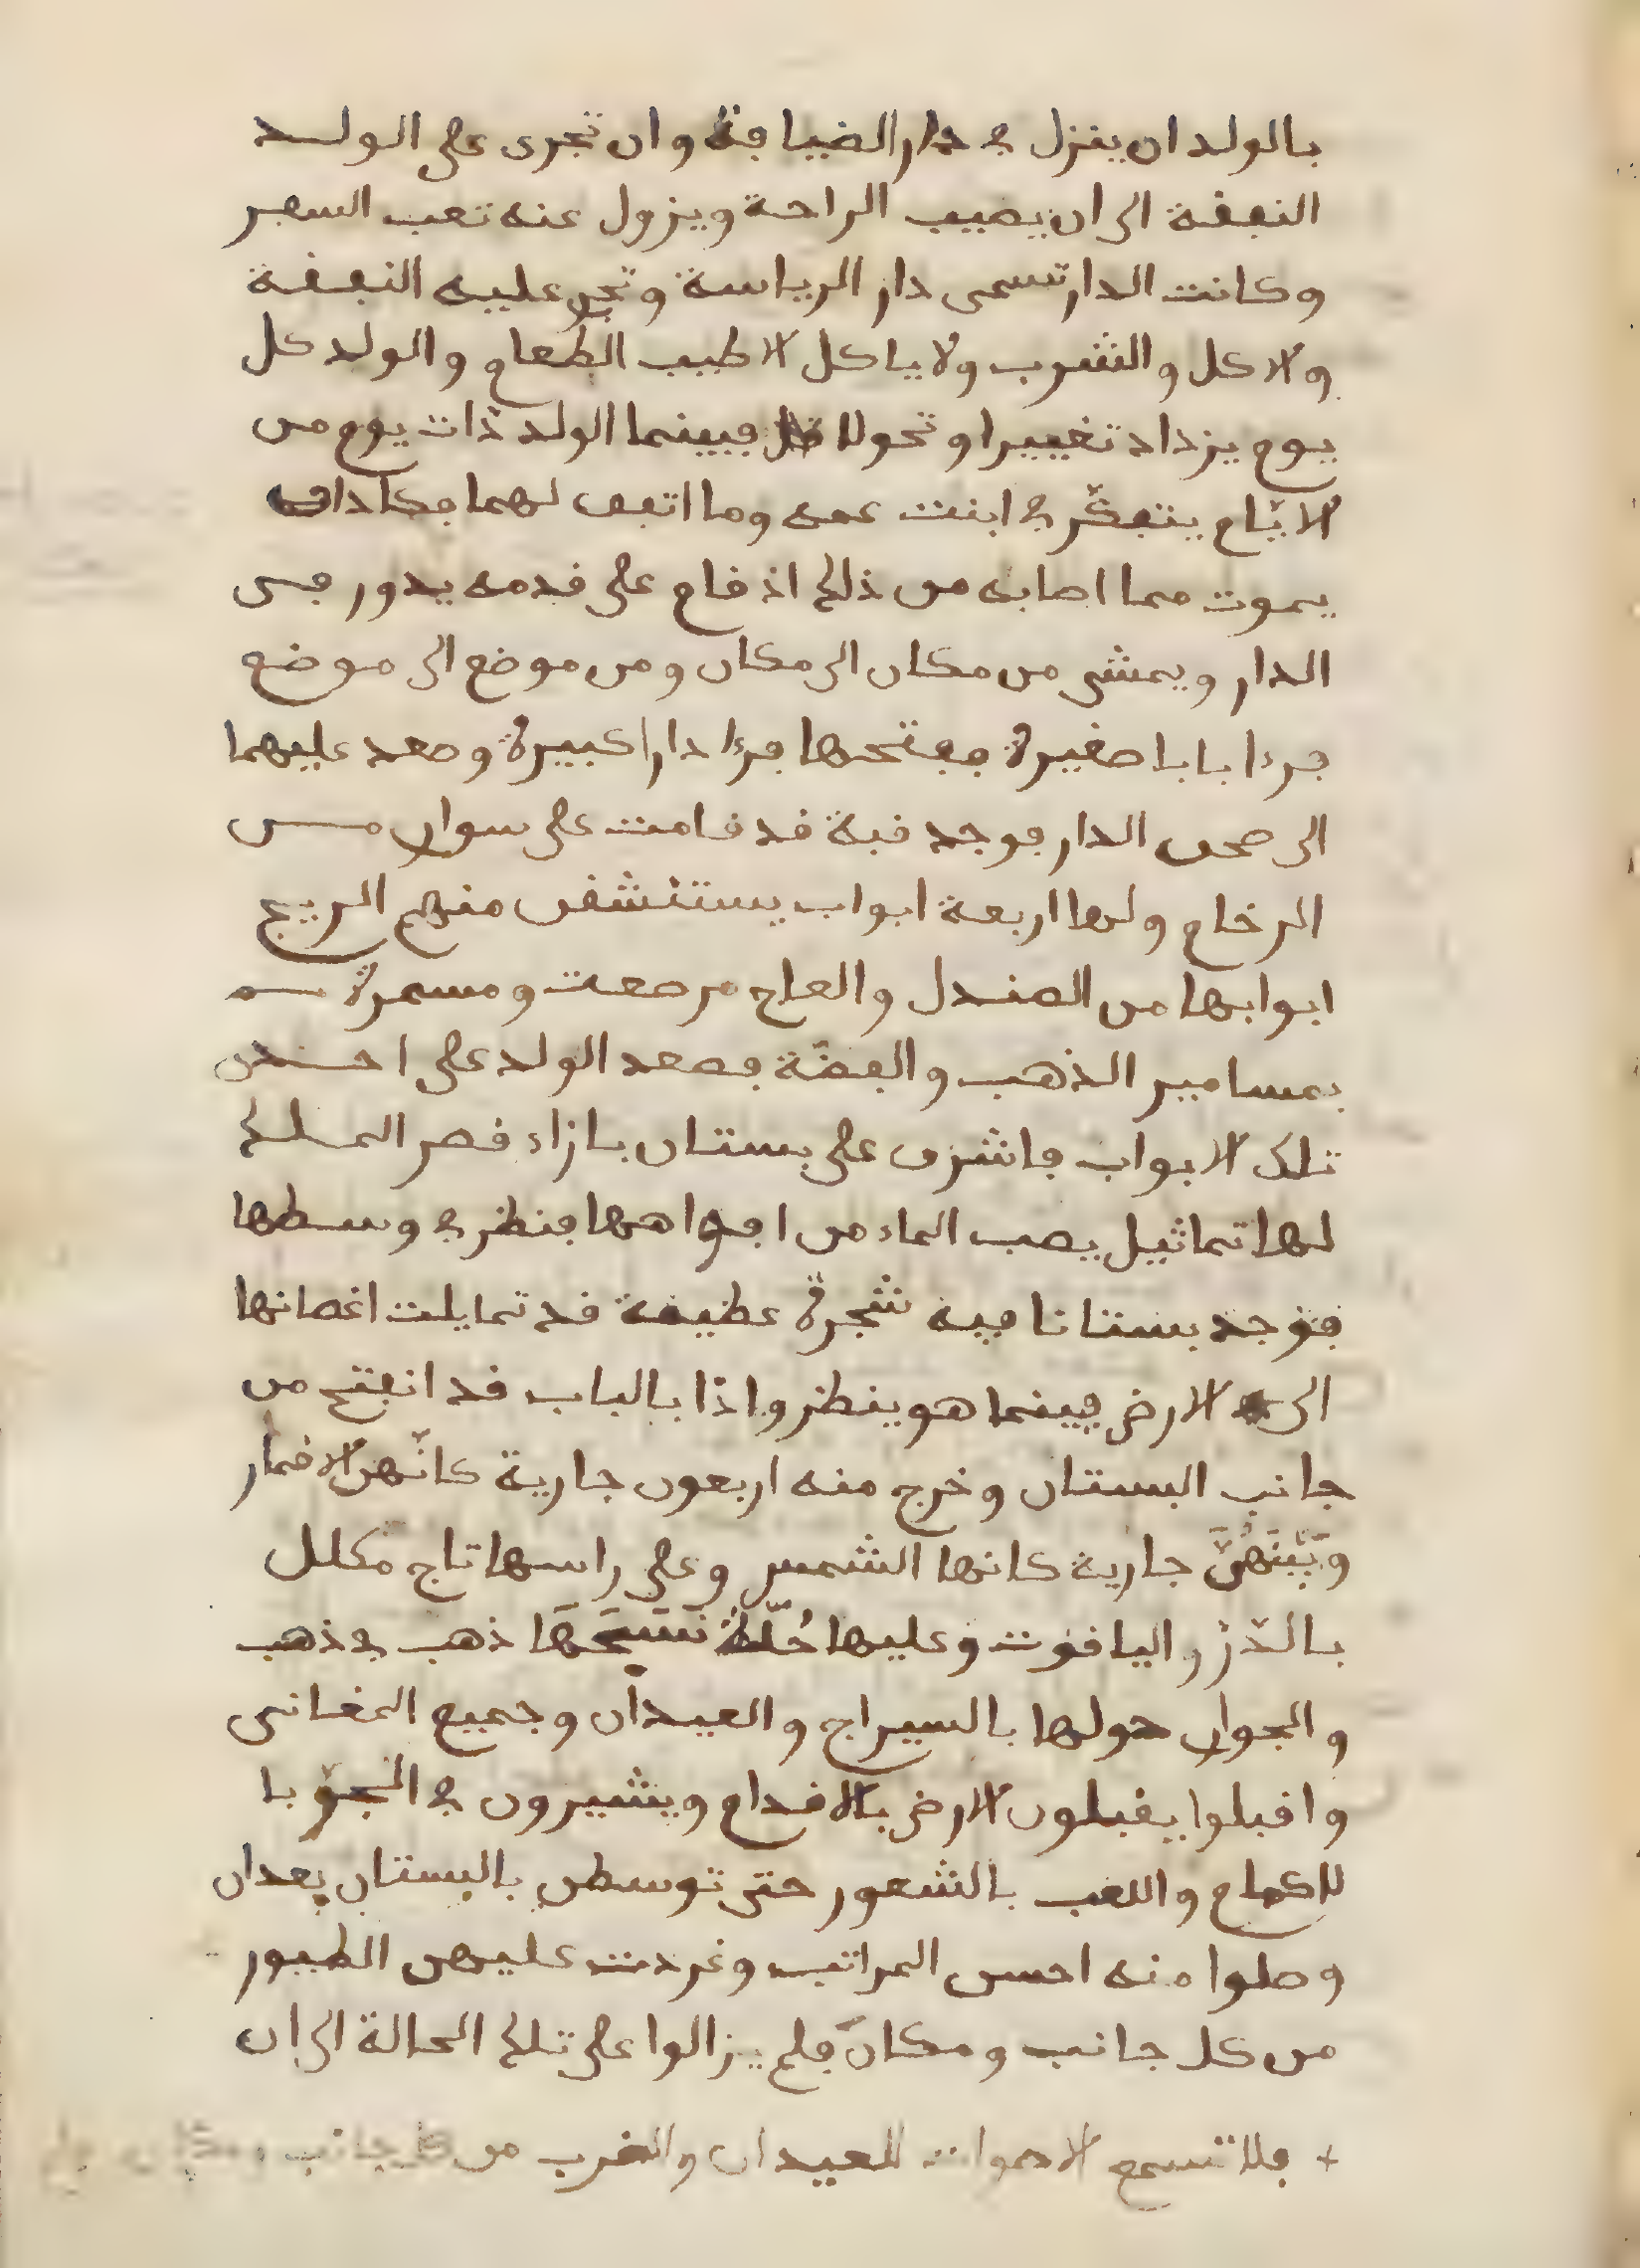 بالولد ان ينزل في دار الضيافة وان تجرى على الولد
النفقة الى ان يصيب الراحة ويزول عنه تعب السفر
وكانت الدار تسمى دار الرياسة وتجر عليه النفقة
والاكل والشرب ولا ياكل الا طيب الطعام والولد كل
يوم يزداد تغييرا وتحولا فبينما الولد ذات يوم من
الايّام يتفكّر في ابنت عمه وما اتفق لهما فكاد ان
يموت مما اصابه من ذلك اذ قام على قدمه يدور في
الدار ويمشى من مكان الى مكان ومن موضع الى موضع
فرءا بابا صغيرة ففتحها فرءا دارا كبيرة وصعد عليهما
الى صحن الدار فوجد قبة قد قامت على سوار من
الرخام ولها اربعة ابواب يستنشقن منهم الريح
ابوابها من الصندل والعاج مرصعت ومسمرة
بمسامير الذهب والفضّة فصعد الولد على احسن
تلك الابواب فاشرف على بستان بازاء قصر الملك
لها تماثيل يصب الماء من افواهها فنظر في وسطها
فوجد بستانا فيه شجرة عظيمة قد تمايلت اغصانها
الى الارض فبينما هو ينظر واذا بالباب قد انفتح من
جانب البستان وخرج منه اربعون جارية كانّهن الاقمار
وبَيْنَهُنَّ جارية كانها الشمس وعلى راسها تاج مكلل
بالدّرّ والياقوت وعليها حُلّة نَسَجَهَا ذهب في ذهب
والجوار حولها بالسيراج والعيدان وجميع المغانى
واقبلوا يقبلون الارض بالاقدام ويشيرون في الجوّ با
لاكمام واللعب بالشعور حتى توسطن بالبستان بعد ان
وصلوا منه احسن المراتب وغردت عليهن الطيور
من كل جانب ومكان فلم يزالوا على تلك الحالة الى ان
+ فلا تسمع الا صوات العيدان والضرب من كل جانب ومكان فلم